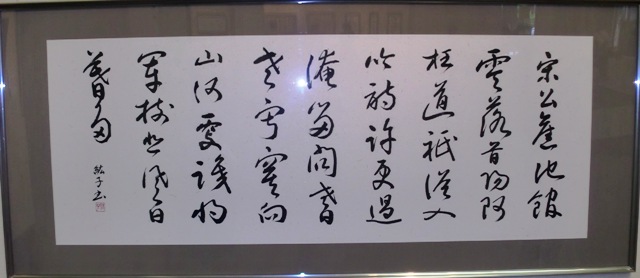 宋公舊池館
零落首陽阿
枉道祇從入
吟詩許更過
淹留問耆
老寂寞向
山河更識將
軍樹悲風日
暮多
子書